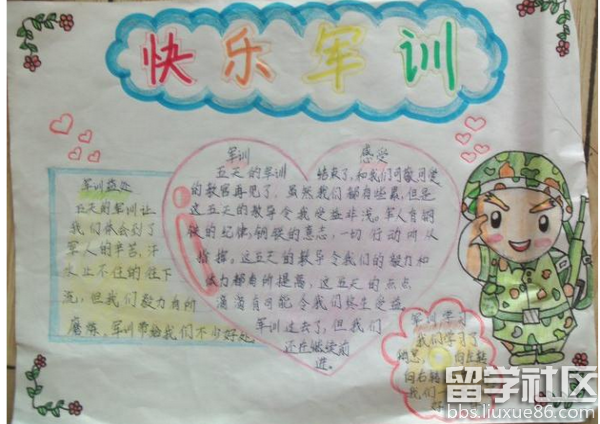 快乐军训
军训益处
五天的军训让
我们体会到了
军人的辛苦,汗
水止不住的往下
流,但我们毅力有所
磨炼、军训带给我们不少好处
军训 感受
五天的军训 结束了,和我们可敬可爱
的教官再见了,虽然我们都有些累,但是
这五天的教导令我受益非浅。军人有钢
铁的纪律,钢铁的意志,一切行动听从
指挥。这五天的教导令我们的毅力和
体力都有所提高,这五天的点点
滴滴有可能令我们终生受益
军训过去了,但我们
还在继续前
进。
军训学习
我们学习了
向左转
向右转
我们一
留学社区
bbs.liuxue86.com